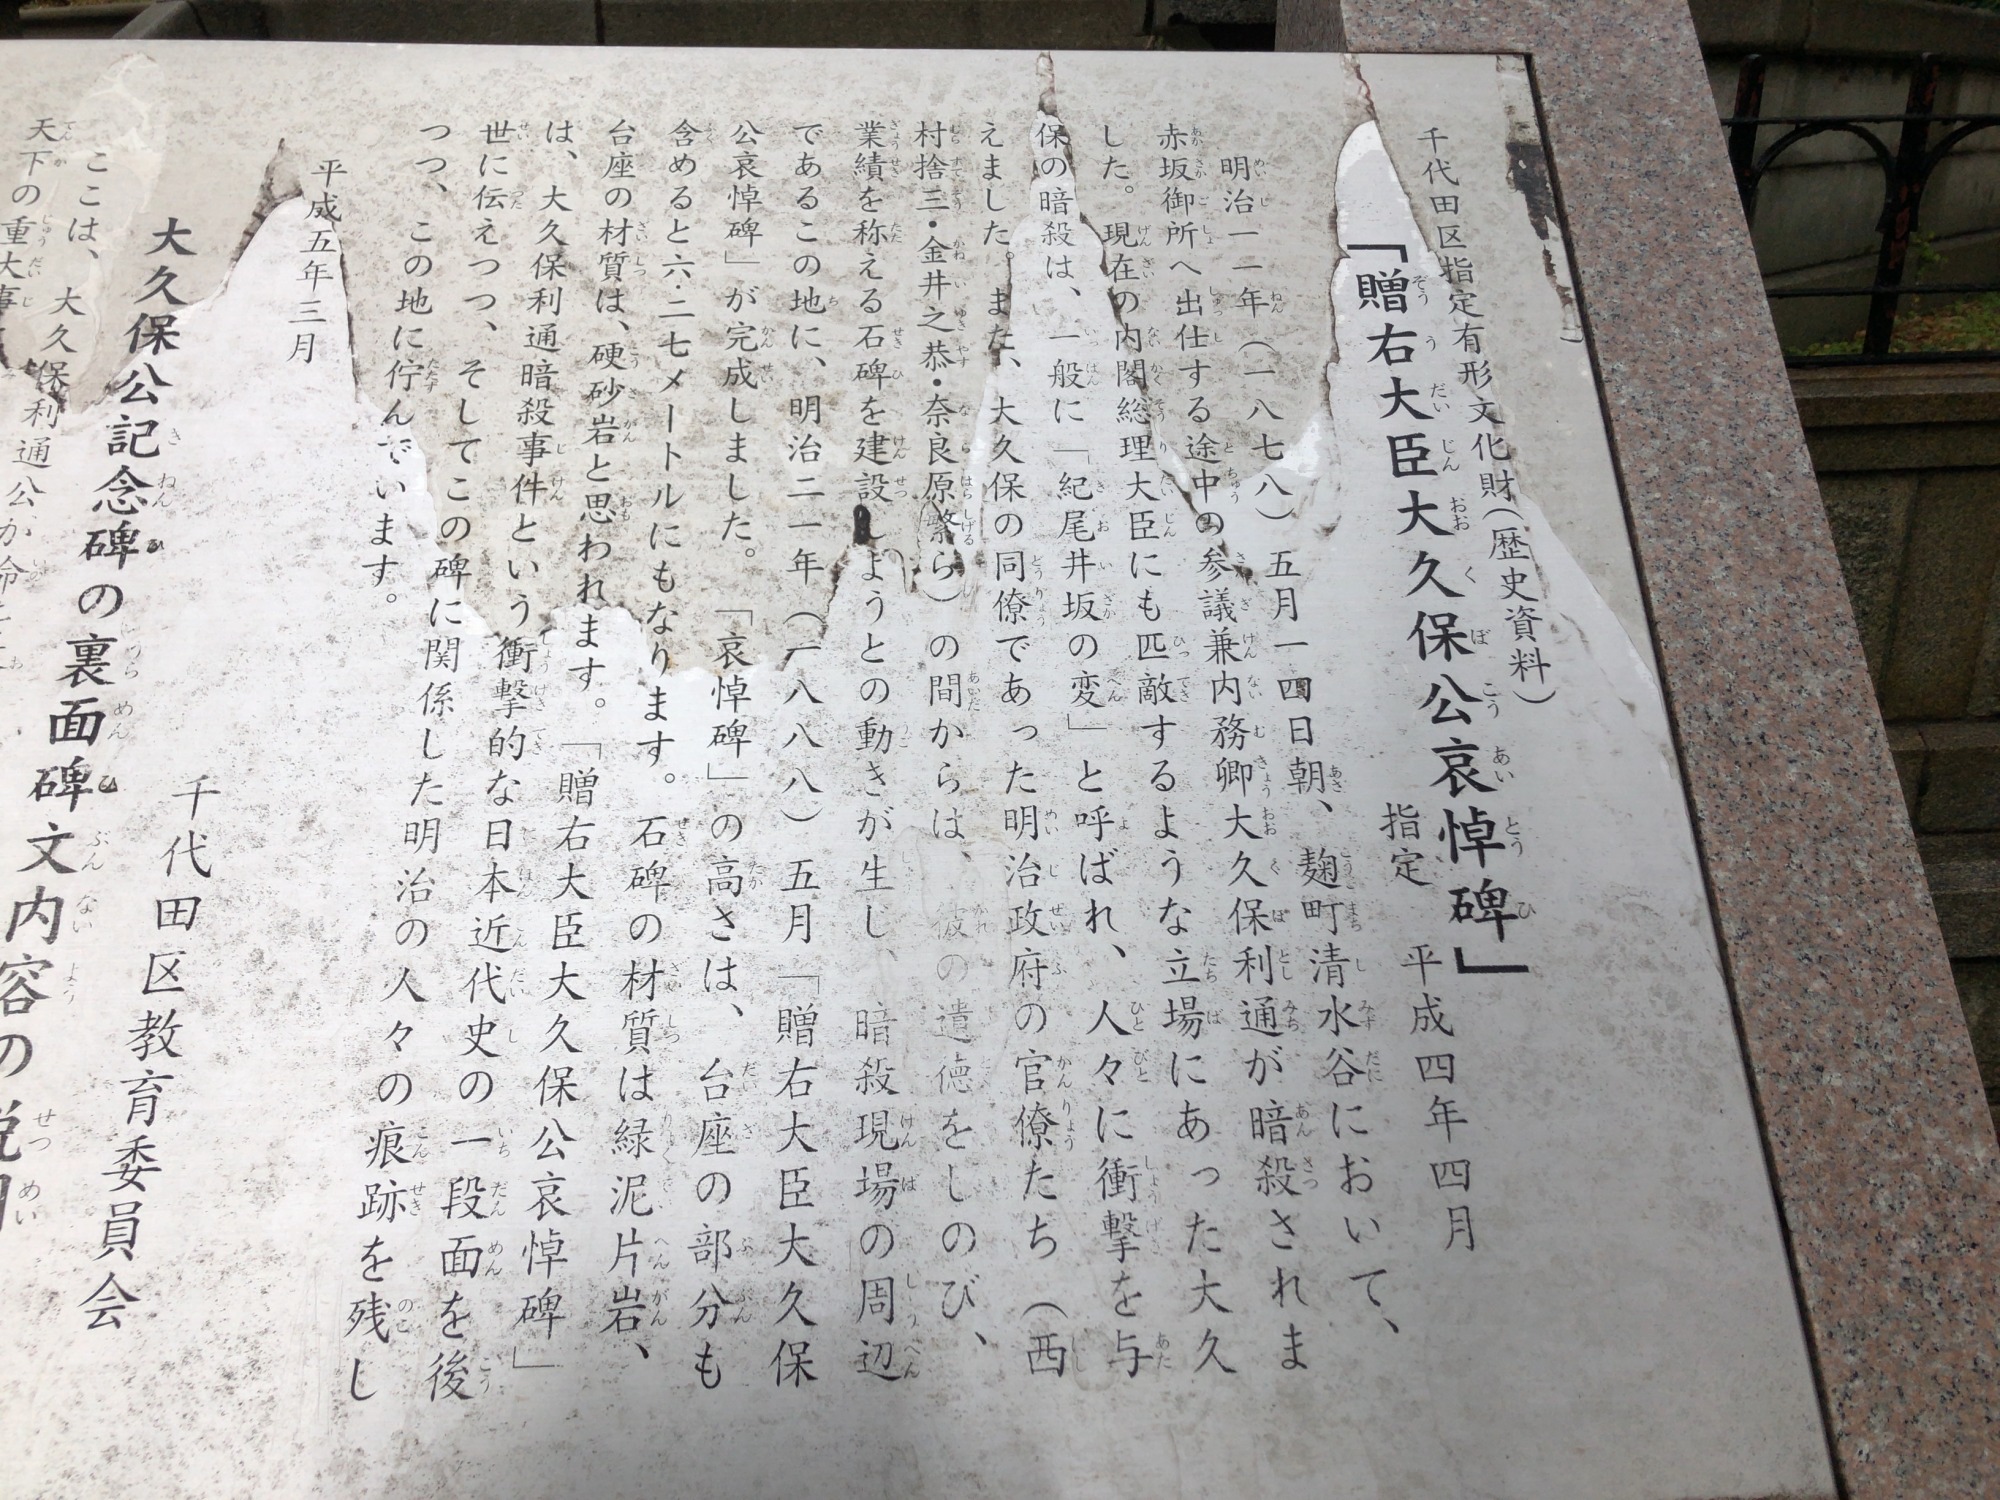 千代田区指定有形文化財(歴史資料)
「贈右大臣大久保公哀悼碑」
指定　平成四年四月
明治一一年(一八七八)五月一四日朝、麹町清水谷において、
赤坂御所へ出仕する途中の参議兼内務卿大久保利通が暗殺されま
した。現在の内閣総理大臣にも匹敵するような立場にあった大久
保の暗殺は、一般に「紀尾井坂の変」と呼ばれ、人々に衝撃を与
えました。また、大久保の同僚であった明治政府の官僚たち(西
村捨三・金井之恭・奈良原繁ら)の間からは、彼の遺徳をしのび、
業績を称える石碑を建設しようとの動きが生じ、暗殺現場の周辺
であるこの地に、明治二一年(一八八八)五月「贈右大臣大久保
公哀悼碑」が完成しました。「哀悼碑」の高さは、台座の部分も
含めると六・二七メートルにもなります。石碑の材質は緑泥片岩、
台座の材質は、硬砂岩と思われます。「贈右大臣大久保公哀悼碑」
は、大久保利通暗殺事件という衝撃的な日本近代史の一段面を後
世に伝えつつ、そしてこの碑に関係した明治の人々の痕跡を残し
つつ、この地に佇んでいます。
平成五年三月
千代田区教育委員会
大久保公記念碑の裏面碑文内容の説明
ここは、大久保利通公が命を
天下の重大事